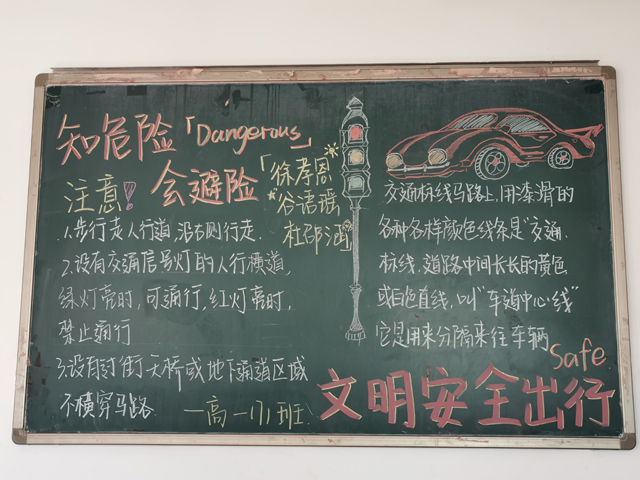 知危险「Dangerous」
会避险
「徐孝恩
谷语瑶
杜邵涵」
注意!
1.步行走人行道,沿右则行走.
2.设有交通信号灯的人行横道,
绿灯亮时,可通行,红灯亮时,
禁止通行
3.设有过街天桥或地下通道区域
不横穿马路.
一高一(1)班
交通标线马路上,用漆滑的
各种各样颜色线条是"交通
标线,道路中间长长的黄色
或白色直线,叫"车道中心线"
它是用来分隔来往车辆
Safe
文明安全出行